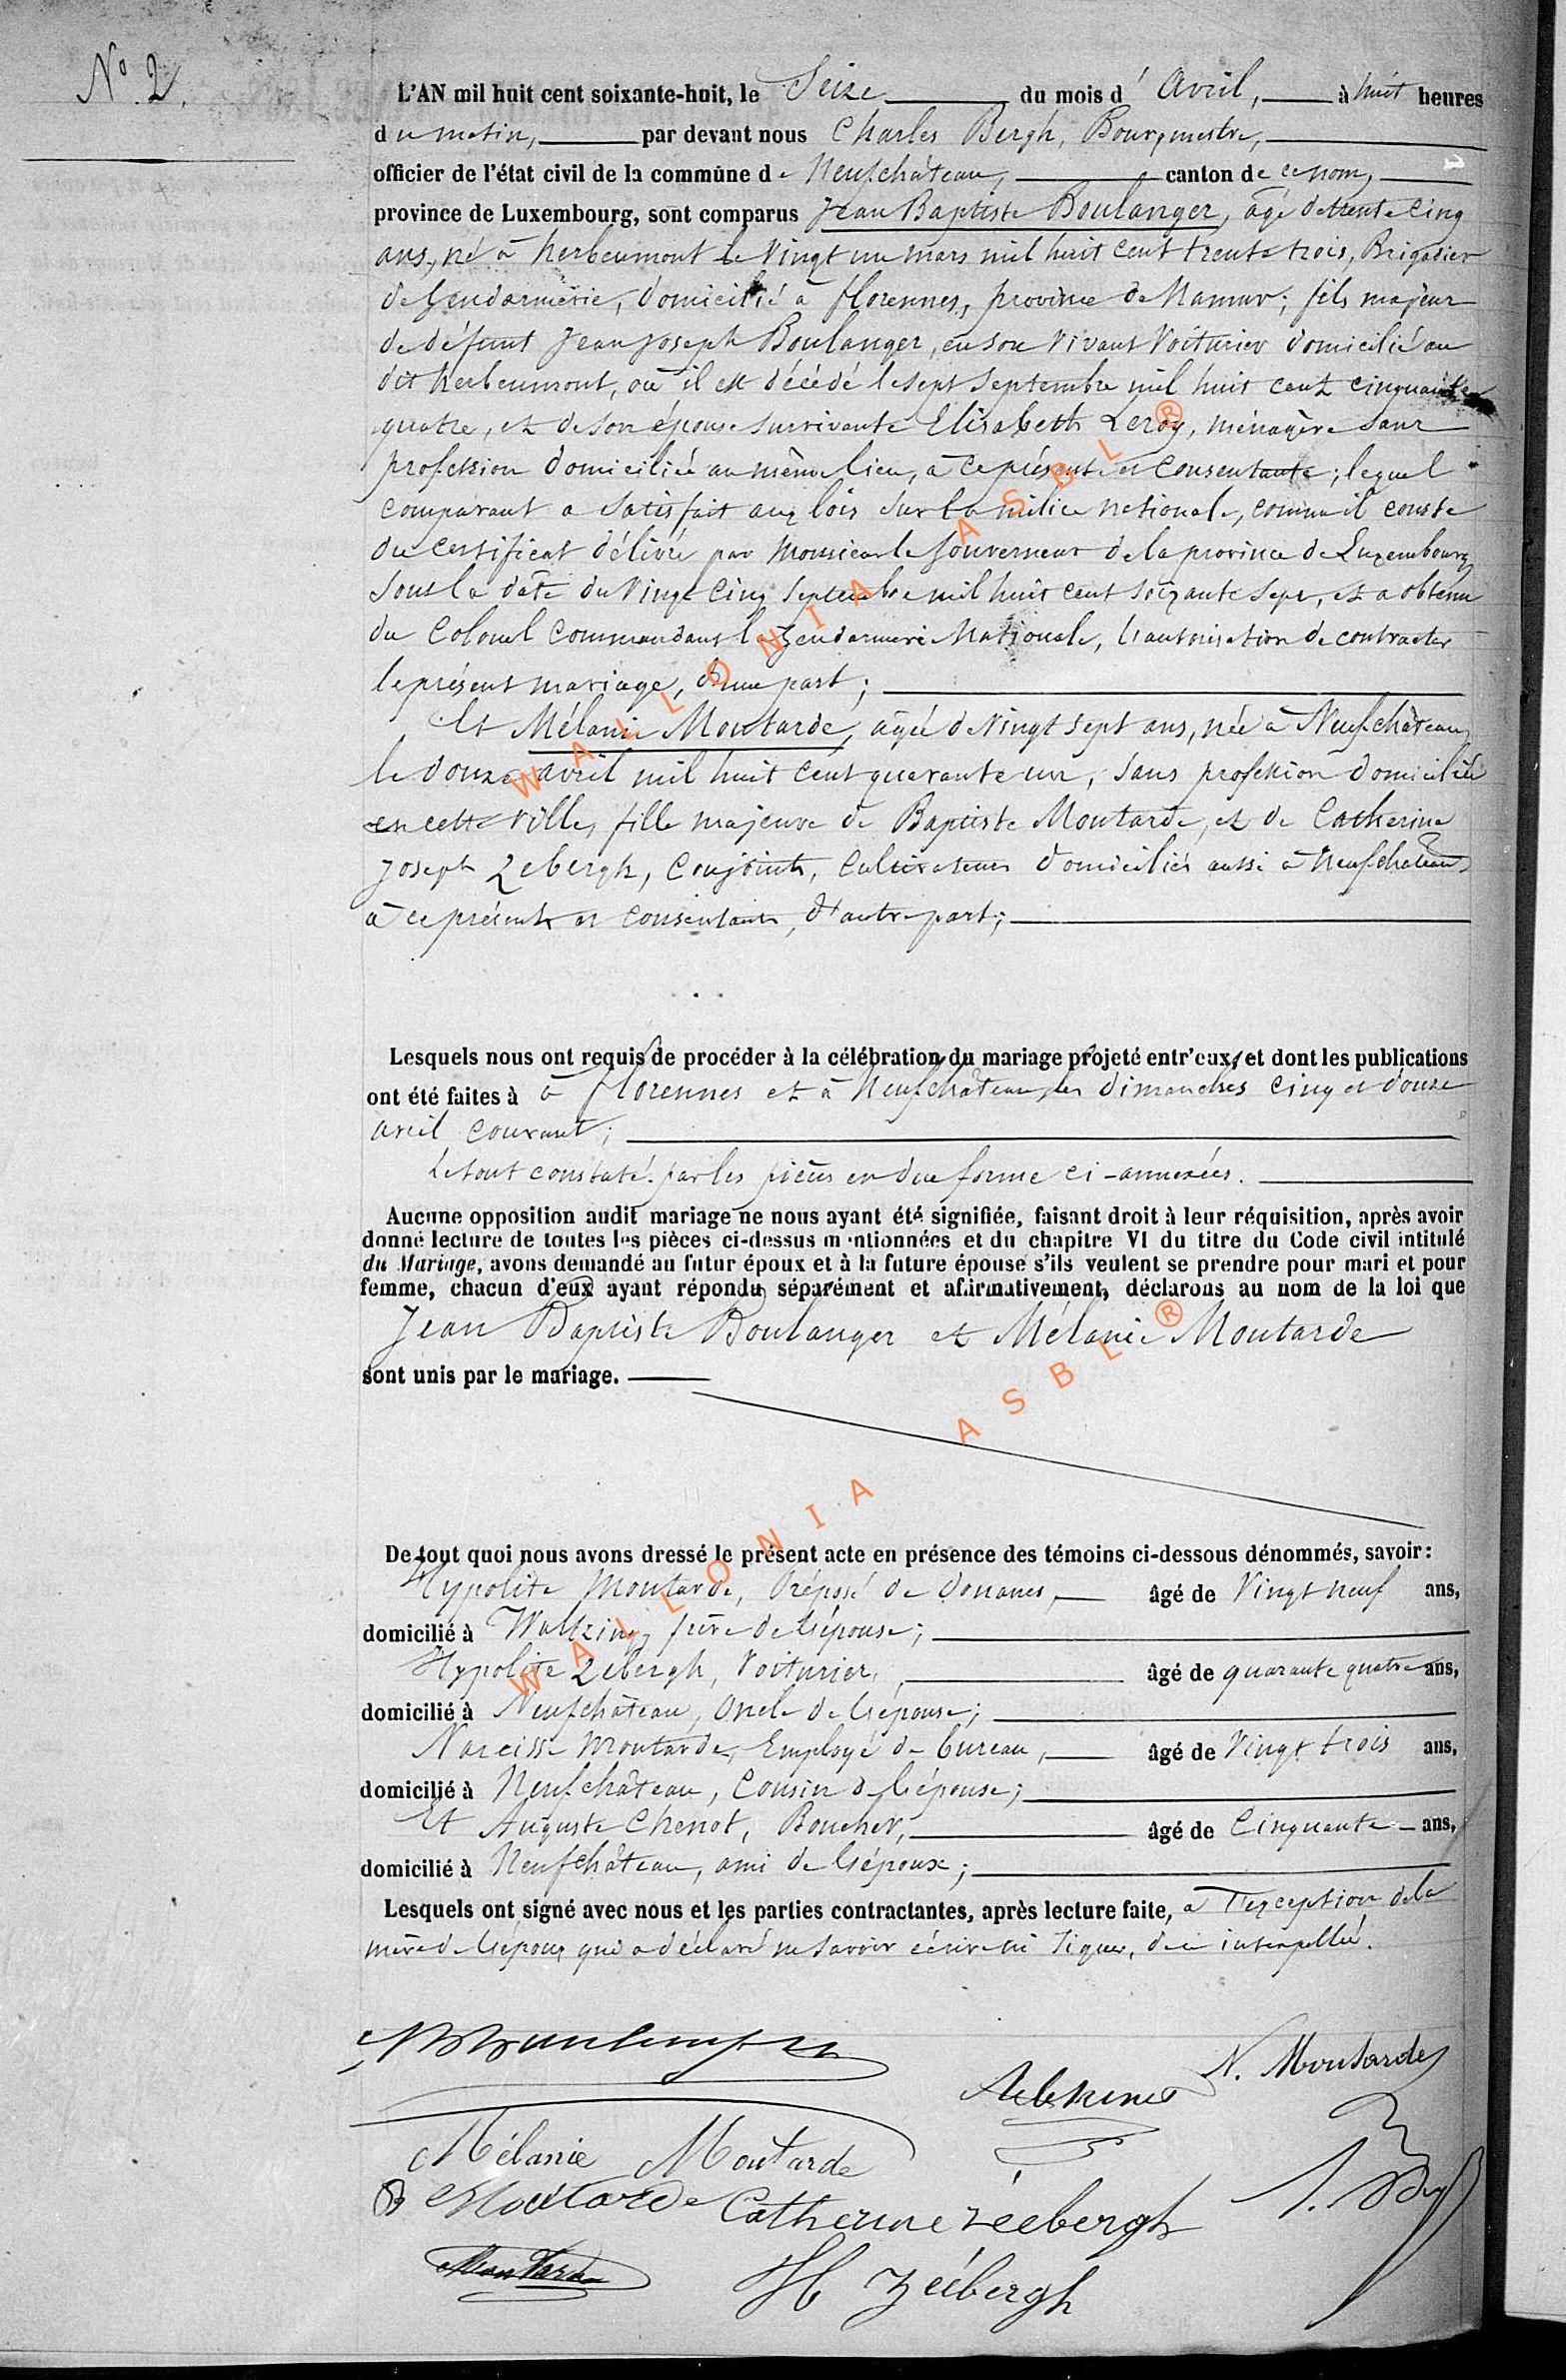 N° 2.
L'AN mil huit cent soixante-huit, le Seize du mois d' Avril, à huit heures
du matin, par devant nous Charles Bergh, Bourgmestre,
officier de l'état civil de la commune de Neufchâteau, canton de ce nom,
province de Luxembourg, sont comparus Jean Baptiste Boulanger, âgé de trente cinq
ans, né à herbeumont le vingt un mars mil huit cent trente trois, Brigadier
de Gendarmerie, domicilié à florennes, province de Namur; fils majeur
de défunt Jean Joseph Boulanger, en son vivant Voiturier domicilié au
dit herbeumont, où il est décédé le sept Septembre mil huit cent cinquante
quatre, et de son épouse survivante Elisabeth Leroy, ménagère sans
profession domiciliée au même lieu, à ce présente et consentante; lequel
comparant a satisfait aux lois sur la milice nationale, comme il conste
du certificat délivré par Monsieur le Gouverneur de la province de Luxembourg
sous la date du vingt cinq Septembre mil huit cent soixante sept, et a obtenu
du Colonel Commandant la Gendarmerie Nationale, l'autorisation de contracter
le présent mariage, d'une part;
Et Mélanie Moutarde, agée de vingt sept ans, née à Neufchâteau,
le douze avril mil huit cent quarante un, sans profession domiciliée
en cette ville, fille majeure de Baptiste Moutarde, et de Catherine
Joseph Zebergh, conjoints, Cultivateurs domiciliés aussi à Neufchâteau,
à ce présents et consentants, d'autre part;
Lesquels nous ont requis de procéder à la célébration du mariage projeté entr'eux, et dont les publications
ont été faites à à florennes et à Neufchâteau, les dimanches cinq et douze
avril courant;
Le tout constaté par les pièces en due forme ci-annexées.
Aucune opposition audit mariage ne nous ayant été signifiée, faisant droit à leur réquisition, après avoir
donné lecture de toutes les pièces ci-dessus mentionnées et du chapitre VI du titre du Code civil intitulé
du Mariage, avons demandé au futur époux et à la future épouse s'ils veulent se prendre pour mari et pour
femme, chacun d'eux ayant répondu séparément et affirmativement, déclarons au nom de la loi que
Jean Baptiste Boulanger et Mélanie Moutarde
sont unis par le mariage.
De tout quoi nous avons dressé le présent acte en présence des témoins ci-dessous dénommés, savoir:
Hypolite Moutarde, Préposé de Douanes, âgé de Vingt neuf ans,
domicilié à Waltzing, frère de l'épouse;
Hypolite Zebergh, Voiturier, âgé de quarante quatre ans,
domicilié à Neufchâteau, Oncle de l'épouse;
Narcisse Moutarde, Employé de bureau, âgé de Vingt trois ans,
domicilié à Neufchâteau, Cousin de l'épouse;
Et Auguste Chenot, Boucher, âgé de Cinquante ans,
domicilié à Neufchâteau, ami de l'époux;
Lesquels ont signé avec nous et les parties contractantes, après lecture faite, à l'exception de la
mère de l'époux qui a déclaré ne savoir écrire ni signer, de ce interpellée.
N. Moutarde
Mélanie Moutarde
B Moutarde Catherine zéebergh
Moutarde
H zéebergh
WALLONIA ASBL ®
WALLONIA ASBL ®